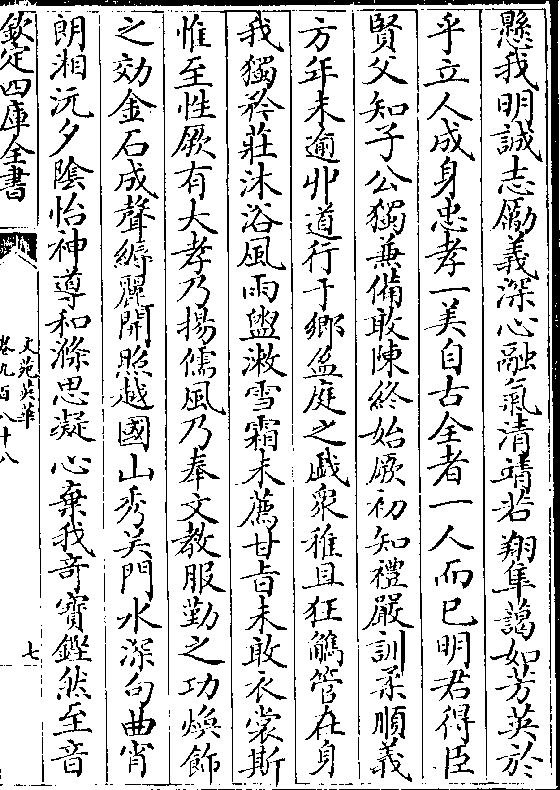 懸我明誠志勵義深心融氣清靖若翔隼藹如芳英於
乎立人成身忠孝一美自古全者一人而已明君得臣
賢父知子公獨兼備敢陳終始厥初知禮嚴訓柔順義
方年未逾丱道行于鄉盈庭之戯衆稚且狂觿管在身
我獨矜莊沐浴風雨盥潄雪霜未薦甘旨未敢衣裳斯
惟至性厥有大孝乃揚儒風乃奉文教服勤之功煥飾
之効金石成聲縟麗開照越國山秀吴門水深句曲宵
朗湘沅夕陰怡神導和滌思凝心棄我竒寶鏗然至音
欽定四庫全書
文苑英華
卷九百八十八
七